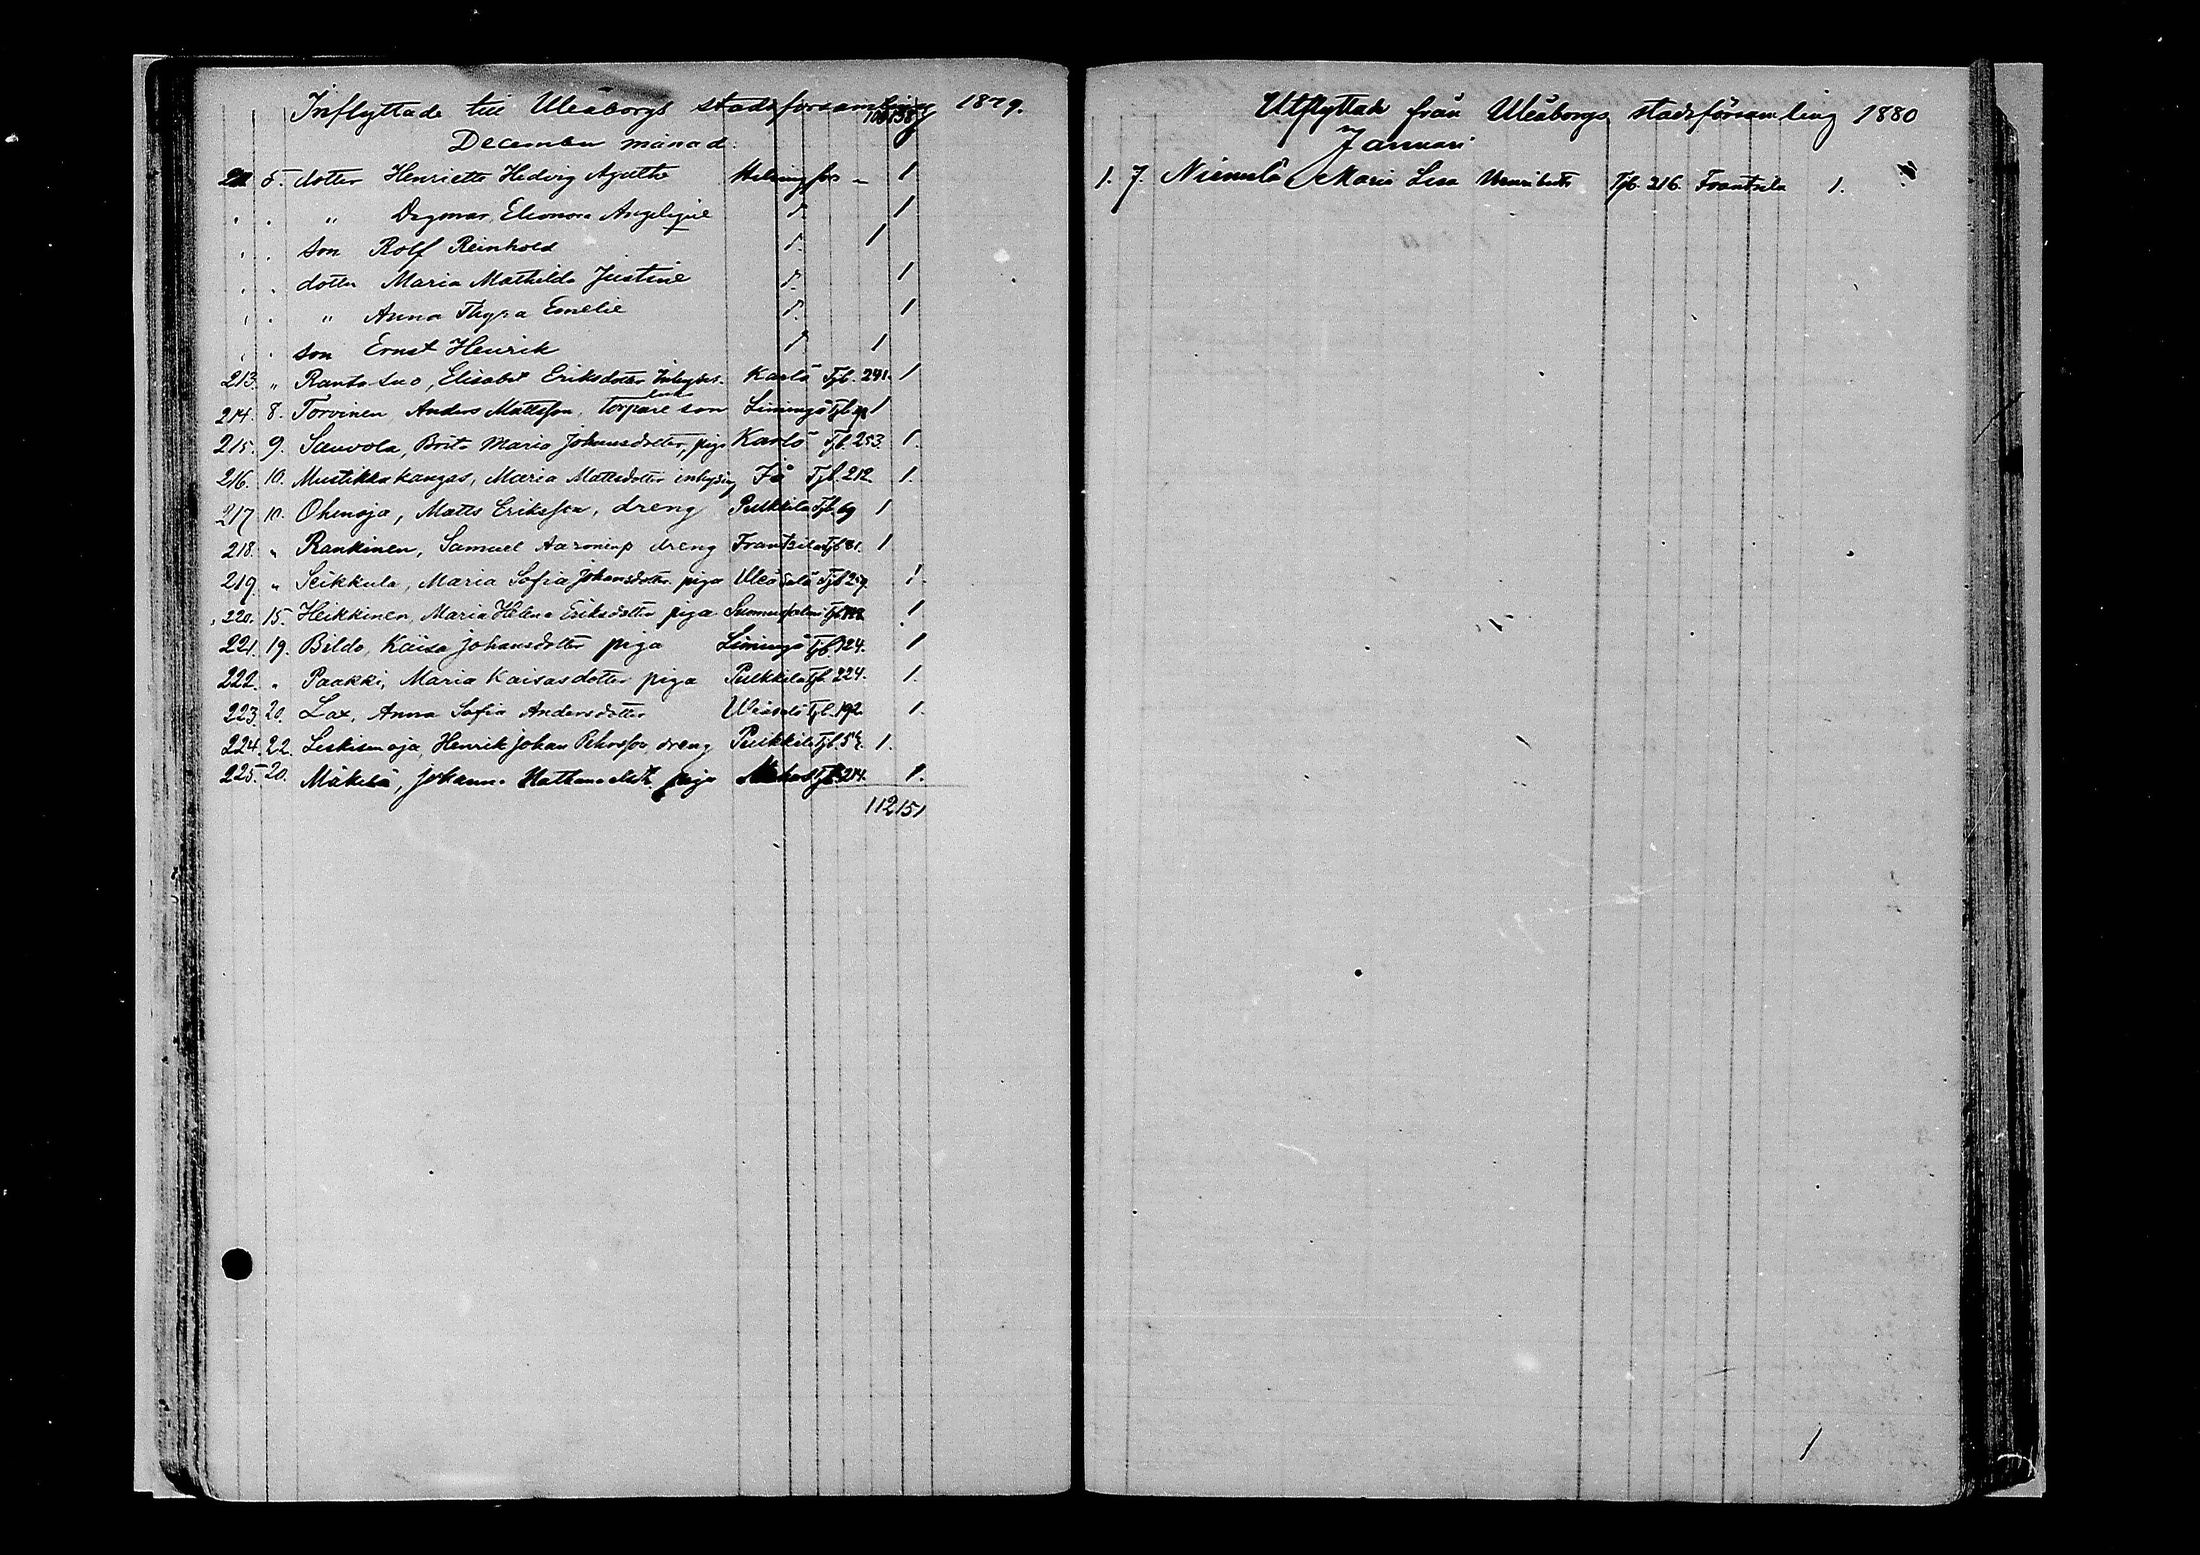 Inflyttade till Uleåborgs stadsförsamling 1879.
106 138
December månad.
5. dotter Henriette Hedvig Agathe Helsingfors – 1
" Dagmar Eleonora Angelique d:o 1
son Rolf Reinhold d:o 1
dotter Maria Mathilda Justine d:o 1
" Anna Thyra Emelie d:o 1
son Ernst Henrik d:o 1
213. " Ranta-suo, Elisabet Eriksdotter Karlö Tjb. 241. 1
214. 8. Torvinen, Anders Mattsson, torpare son Limingo Tjb. 1
215. 9. Sauvola, Brita Maria Johansdotter, piga Karlö Tjb. 253. 1.
216. 10. Mustikkakangas, Maria Mattsdotter inhysing Ijo Tjb. 212. 1.
217 10. Ohenoja, Matts Eriksson, dreng Pulkkila Tjb. 69 1
218. " Rankinen, Samuel Aaronsson dreng Frantsila Tjb 81. 1
219. " Seikkula, Maria Sofia Johansdotter piga Uleåsalo Tjb 259. 1.
220. 15. Heikkinen, Maria Helena Eriksdotter piga Suomussalmi Tjb 1
221. 19. Bildo, Kaisa Johansdotter piga Limingo Tjb. 324. 1
222. " Paakki, Maria Kaisasdotter piga Pulkkila Tjb. 224. 1.
223. 20. Lax, Anna Sofia Andersdotter Uleåsalo Tjb. 192. 1.
224. 22. Leskisenoja, Henrik Johan Pehrsson, dreng Pulkkila Tjb. 1.
225. 20. Mäkelä, Johanna piga Tjb 214. 1.
112 151
Utflyttade från Uleåborgs stadsförsamling 1880
Januari
1. 7. Niemelä Maria Lisa Henriksdr Tjb. 216. Frantsila 1.
1